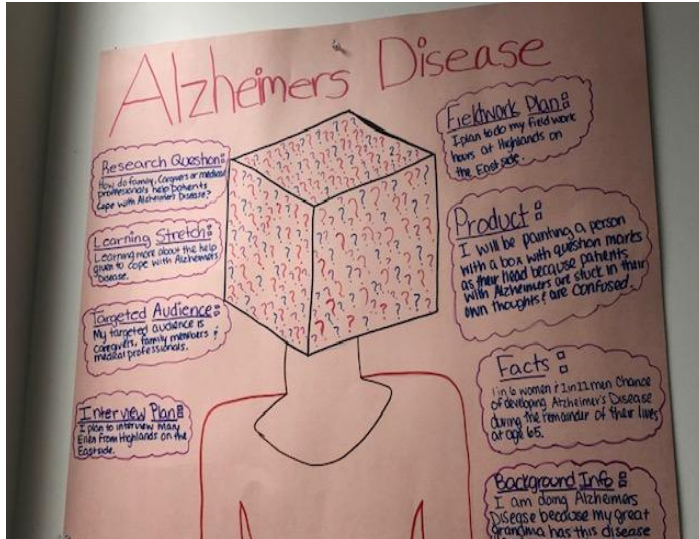 Alzheimers Disease
Research Question:
How do family, Cargivers or medical
professionals help patients
Cope with Alzheimer's Disease?
Learning Stretch:
Learning more about the help
given to cope with Alzheimers
Disease.
Targeted Audience:
My targeted audience is
caregivers, family members &
medical professionals.
Interview Plan:
I plan to interview Mary
Ellen from Highlands on the
Eastside.
Fieldwork Plan:
I plan to do my field work
hours at Highlands on
the East side.
Product:
I will be painting a person
with a box with question marks
as their head because patients
with Alzheimers are stuck in their
own thoughts & are confused.
Facts:
1 in 6 women & 1 in 11 men chance
of developing Alzheimer's Disease
during the remainder of their lives
at age 65.
Background Info:
I am doing Alzheimers
Disease because my great
grandma has this disease